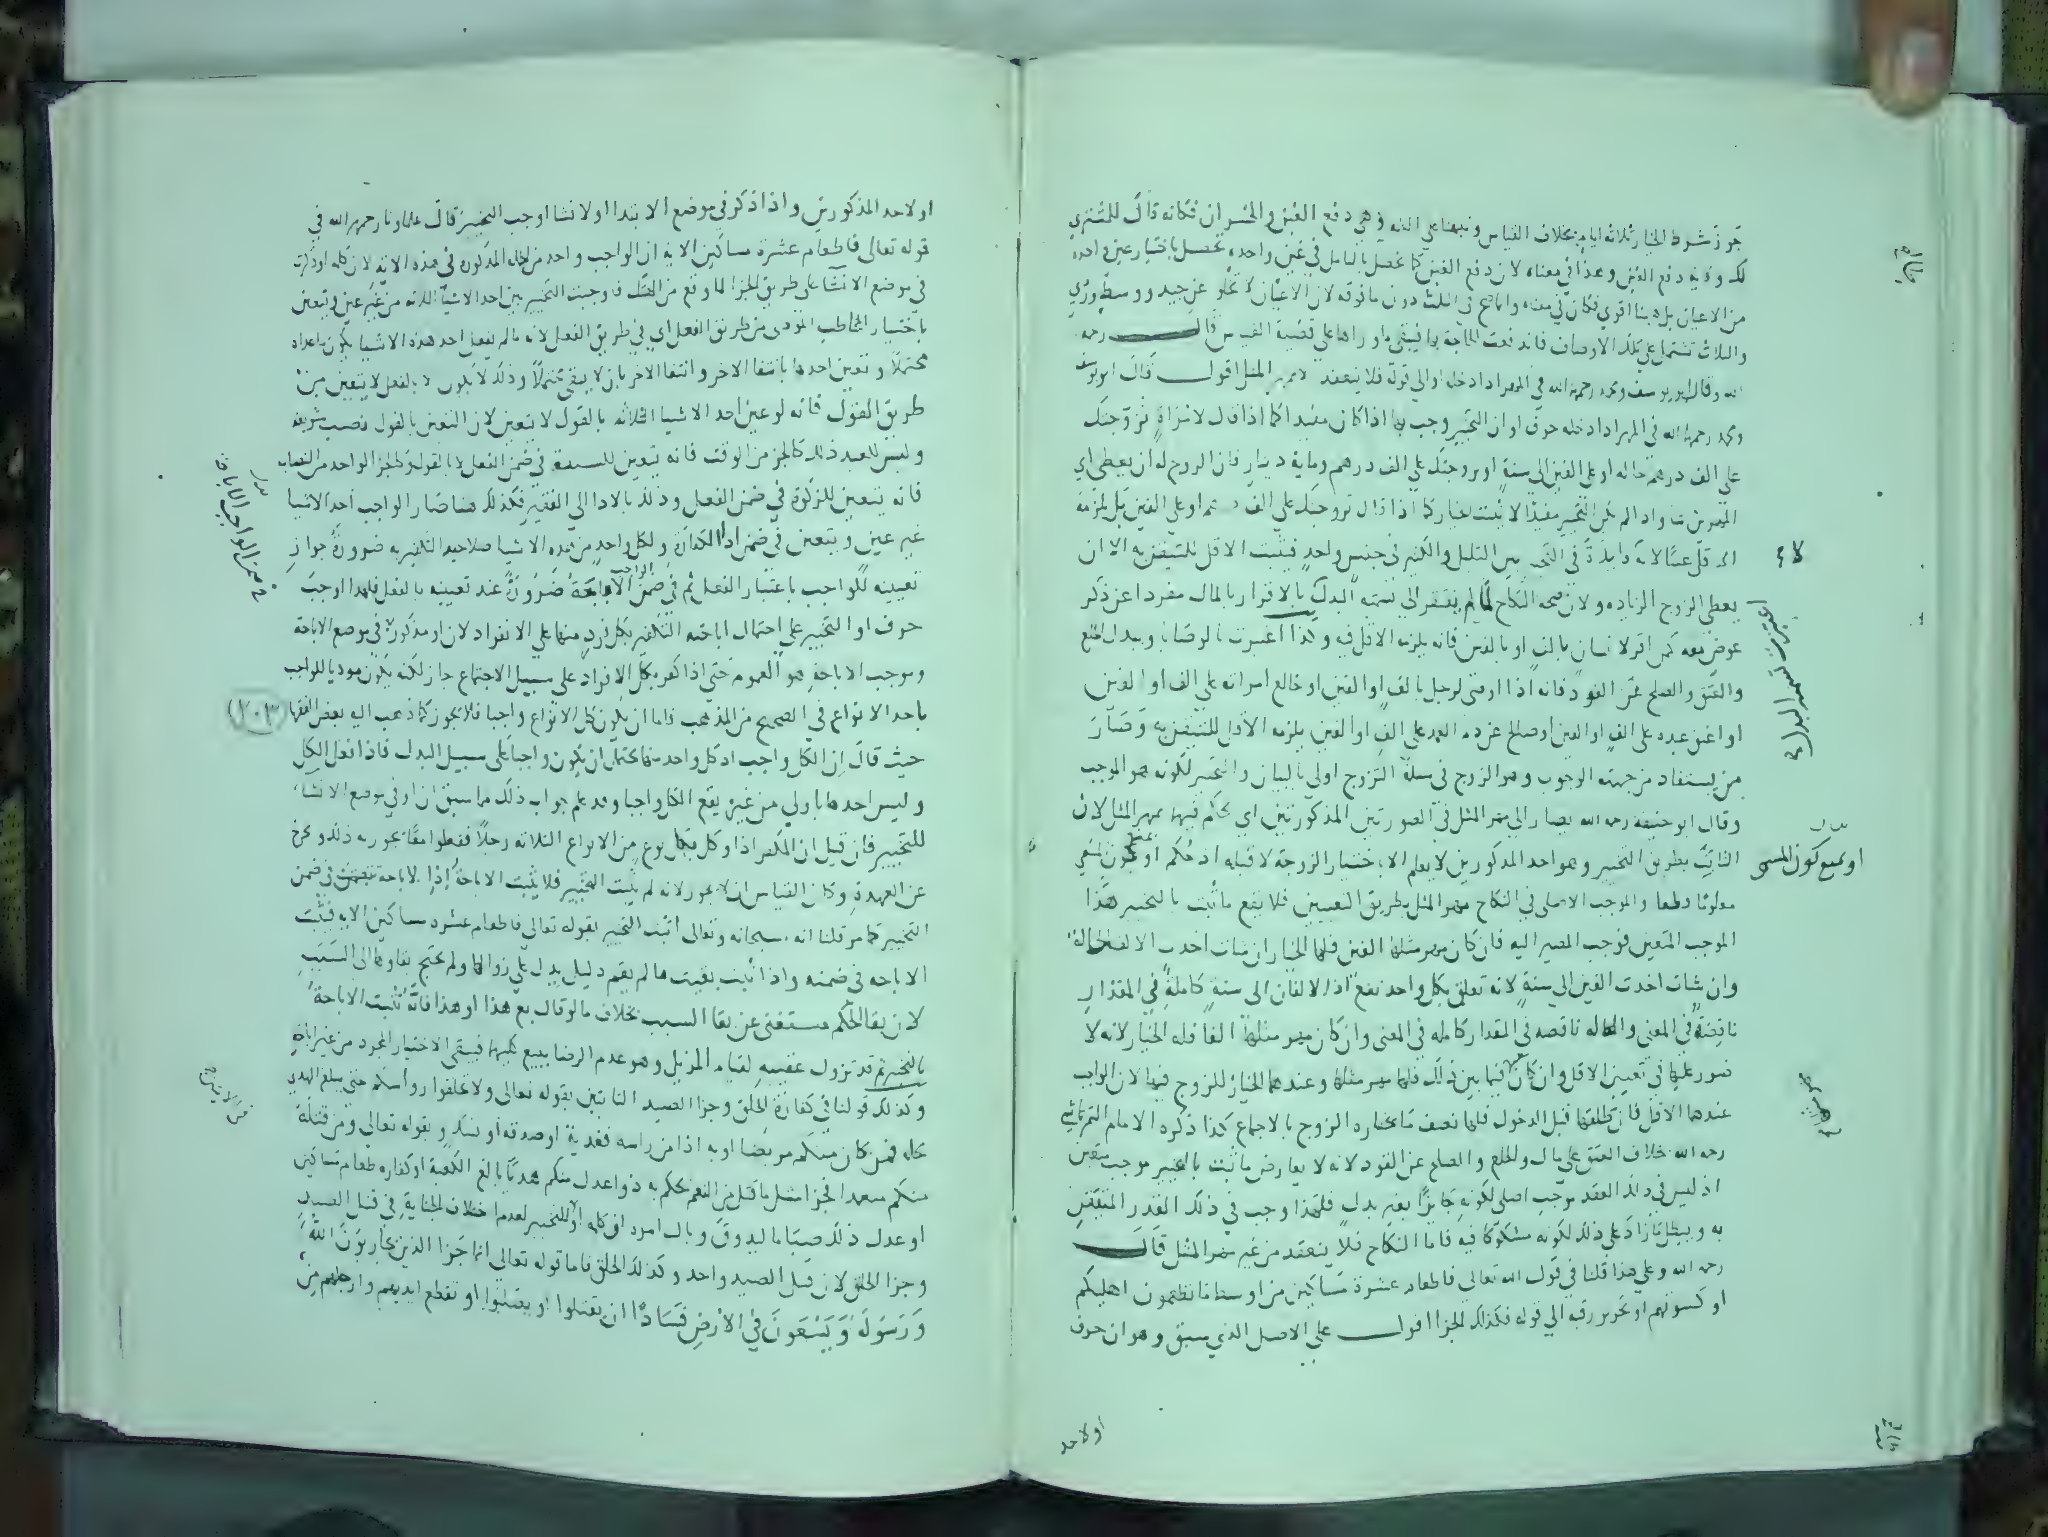 جوز شرط الخيار ثلاثة ايام بخلاف القياس وهي دفع الغبن والخسران فكانه قال للمشتري
لك ولاية دفع الغبن وهذا في معناه لان دفع الغبن كما يحصل بالتامل في عين واحدة يحصل باختيار عين واحدة
من الاعيان بل هنا اقوي فكان في معناه وانما صح في الثلث دون ما فوقه لان الاعيان لا تخلو عن جيد ووسط وردي
والثلاث تشتمل على تلك الاوصاف فاندفعت الحاجة بها فيبقي ما وراها على قضية القياس قال رحمه
الله وقال ابو يوسف ومحمد رحمهما الله في المهر اذا دخله او الي قوله فلا ينعقد مهر المثل اقول قال ابو يوسف
ومحمد رحمهما الله في المهر اذا دخله حرف او ان التخيير وجب بها اذا كان مفيدا كما اذا قال لامراة تزوجتك
على الف درهم حالة او على الفين الى سنة او تزوجتك على الف درهم وماية دينار فان الزوج له ان يعطي اي
المهرين شا واذا لم يكن التخيير مفيدا لا يثبت الخيار كما اذا قال تزوجتك على الف درهم او على الفين بل يلزمه
الاقل عينا لانه لا فايدة في التخيير بين القليل والكثير في جنس واحد فيثبت الاقل للتيقن به الا ان
يعطي الزوج الزيادة ولان صحة النكاح لما لم يفتقر الى تسمية البدل بالاقرار بالمال مفردا عن ذكر
عوض معه كمن اقر لانسان بالف او بالفين فانه يلزمه الاقل فيه وهذا اعتبرت بالوصايا وببدل الخلع
والعتق والصلح عن القود فانه اذا اوصى لرجل بالف او الفين او خالع امراته على الف او الفين
او اعتق عبده على الف او الفين او صالح عن دم العمد على الف او الفين يلزمه الاقل للتيقن به وصار
من يستفاد من جهته الوجوب وهو الزوج في مسلة التزوج اولي بالبيان والتخيير لكونه هو الموجب
وقال ابو حنيفة رحمه الله يصار الى مهر المثل في الصورتين المذكورتين اي يحكم فيهما بمهر المثل لان
الثابت بطريق التخيير وهو احد المذكورين لا يعلم الا باختيار الزوجة لا قبله اذ حكم او يمنع كون المسمى
معلوما قطعا والموجب الاصلي في النكاح مهر المثل بطريق التعيين فلا يقع ما ثبت بالتخيير هذا
الموجب المتعين فوجب المصير اليه فان كان مهر مثلها الفين فلها الخيار ان شات اخذت الالف الحالة
وان شات اخذت الفين الى سنة لانه تعلق بكل واحد نفع اذ الالفان الى سنة كاملة في المقدار
ناقصة في المعنى والحالة ناقصة في المقدار كاملة في المعنى وان كان مهر مثلها الفا فله الخيار لانه لا
ضرر عليها في تعيين الاقل وان كان فيما بين ذلك فلها مهر مثلها وعندهما الخيار للزوج فيها لان الواجب
عندهما الاقل فان طلقها قبل الدخول فلها نصف ما يختاره الزوج بالاجماع كذا ذكره الامام التمرتاشي
رحمه الله خلاف العتق على مال والخلع والصلح عن القود لانه لا يعارض ما ثبت بالتخيير موجب متعين
اذ ليس في ذلك العقد موجب اصلي لكونه جايزا بغير بدل فلهذا وجب في ذلك القدر المتيقن
به ويبطل ما زاد على ذلك لكونه مشكوكا فيه فاما النكاح فلا ينعقد من غير مهر المثل قال
رحمه الله وعلي هذا قلنا في قول الله تعالى فاطعام عشرة مساكين من اوسط ما تطعمون اهليكم
او كسوتهم او تحرير رقبة الى قوله فكذلك الجزا اقول على الاصل الذي سبق وهو ان حرف
اولاحد
او يمنع كون المسمى
اولاحد المذكورين واذا ذكر في موضع الابتدا اولانشا اوجب التخيير قال علماونا رحمهم الله في
قوله تعالى فاطعام عشرة مساكين الاية ان الواجب واحد من الجملة المذكورة في هذه الاية لان كلمة او ذكرت
في موضع الانشا على طريق الجزا فاوجبت التخيير بين احد الاشيا الثلاثة من غير عين ويتعين
باختيار المخاطب المودي من طريق الفعل اي في طريق الفعل لانه ما لم يفعل احد هذه الاشيا يكون ما عداه
محتملا وتعين احدها بانتفا الاخر وانتفا الاخر بان لا يبقي محتملا وذلك لا يكون الا بالفعل لا يتعين من
طريق القول فانه لو عين احد الاشيا الثلاثة بالقول لا يتعين لان التعين بالقول نصب شريعة
وليس للعبد ذلك كالجز من الوقت فانه يتعين للسببية في ضمن الفعل لا بالقول وكالجز الواحد من النصاب
فانه يتعين للزكوة في ضمن الفعل وذلك بالادا الي الفقير فكذلك هنا صار الواجب احد الاشيا
غير عين ويتعين في ضمن ادا الكفارة ولكل واحد من هذه الاشيا صلاحية التكفير به ضرورة جواز
تعيينه للواجب باعتبار الفعل ثم في ضمن الواجب الاباحة ضرورة عند تعيينه بالفعل فلهذا اوجب
حرف او التخيير على احتمال اباحة التكفير بكل فرد منها علي الانفراد لان او مذكورة في موضع الاباحة
وموجب الاباحة هو العموم حتى اذا كفر بكل الافراد على سبيل الاجتماع جاز لكنه يكون موديا للواجب
باحد الانواع في الصحيح من المذهب فاما ان يكون كل الانواع واجبا فلا يجوز كما ذهب اليه بعض الفقها
حيث قال ان الكل واجب اذ كل واحد منها يحتمل ان يكون واجبا على سبيل البدل فاذا فعل الكل
وليس احدها باولي من غيره يقع الكل واجبا وقد علم جواب ذلك مما سبق ان او في موضع الانشا
للتخيير فان قيل ان المكفر اذا وكل بكل نوع من الانواع الثلاثة رجلا ففعلوا معا يجوز به ذلك ويخرج
عن العهدة وكان القياس ان لا يجوز لانه لم يثبت التخيير فلا يثبت الاباحة اذا الاباحة تثبت في ضمن
التخيير كما مر قلنا انه سبحانه وتعالى اثبت التخيير بقوله تعالى فاطعام عشرة مساكين الاية فيثبت
الاباحة في ضمنه واذا ثبت بقيت ما لم يقم دليل يدل على زوالها ولم يحتج بقاوها الى السبب
لان بقا الحكم مستغنى عن بقا السبب بخلاف ما لو قال بع هذا او هذا فانه تثبت الاباحة
بالتخيير ثم قد تزول عقيبه لقيام المزيل وهو عدم الرضا ببيع كليهما فيبقي الاختيار المجرد من غير اباحة
وكذلك قولنا في كفارة الحلق وجزا الصيد الثابتين بقوله تعالى ولا تحلقوا رؤسكم حتى يبلغ الهدي
محله فمن كان منكم مريضا او به اذا من راسه ففدية او صدقة او نسك وبقوله تعالى ومن قتله
منكم متعمدا فجزا مثل ما قتل من النعم يحكم به ذوا عدل منكم هديا بالغ الكعبة او كفارة طعام مساكين
او عدل ذلك صياما ليذوق وبال امره ان كلمة او للتخيير لعدم اختلاف الجناية في قتل الصيد
وجزا الحلق لان قتل الصيد واحد وكذلك الحلق فاما قوله تعالى انما جزا الذين يحاربون الله
ورسوله ويسعون في الارض فسادا ان يقتلوا او يصلبوا او تقطع ايديهم وارجلهم من
(٢٠٣)